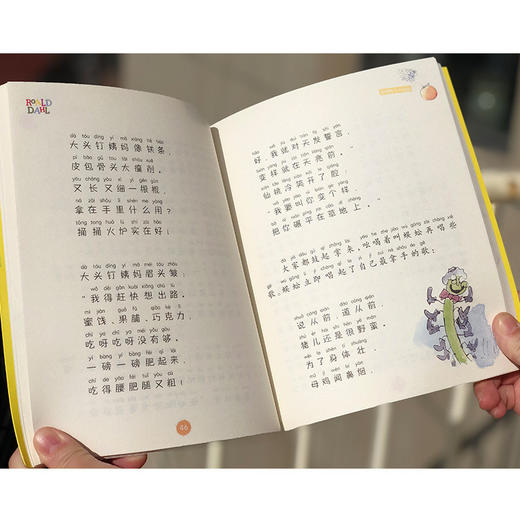 ROALD
DAHL
dà tóu dīng yí mā xiàng tiě tiáo
大头钉姨妈像铁条,
pí bāo gǔ tou dà shòu xuē
皮包骨头大瘦削。
yòu cháng yòu xì yì gēn gùn
又长又细一根棍,
ná zài shǒu lǐ shén me yòng
拿在手里什么用?
tǒng tong huǒ lú shí zài hǎo
捅捅火炉实在好!
dà tóu dīng yí mā méi tóu zhòu
大头钉姨妈眉头皱:
wǒ děi gǎn kuài xiǎng chū lù
“我得赶快想出路。
mì jiàn guǒ fǔ qiǎo kè lì
蜜饯、果脯、巧克力,
chī ya chī ya méi yǒu gòu
吃呀吃呀没有够。
yí bàng yí bàng féi qǐ lái
一磅一磅肥起来,
chī de yāo féi tuǐ yòu cū
吃得腰肥腿又粗!
46
hǎo wǒ jiù duì tiān fā shì yán
好,我就对天发誓言,
biàn yàng jiù zài tiān liàng qián
变样就在天亮前。”
xiān táo lěng xiào kāi le qiāng
仙桃冷笑开了腔:
wǒ yào jiào nǐ biàn gè yàng
“我要叫你变个样,
bǎ nǐ niǎn píng zài cǎo dì shang
把你碾平在草地上。”
dà jiā dōu gǔ qǐ zhǎng lái yāo he zhe jiào wú gōng zài chàng xiē
大家都鼓起掌来,吆喝着叫蜈蚣再唱些
gē wú gōng lì jí chàng qǐ le zì jǐ zuì ná shǒu de gē
歌。蜈蚣立即唱起了自己最拿手的歌:
shuō cóng qián dào cóng qián
说从前,道从前,
zhū ér hái shi hěn yě mán
猪儿还是很野蛮。
wèi le shēn tǐ zhuàng
为了身体壮,
mǔ jī wén bí yān
母鸡闻鼻烟。